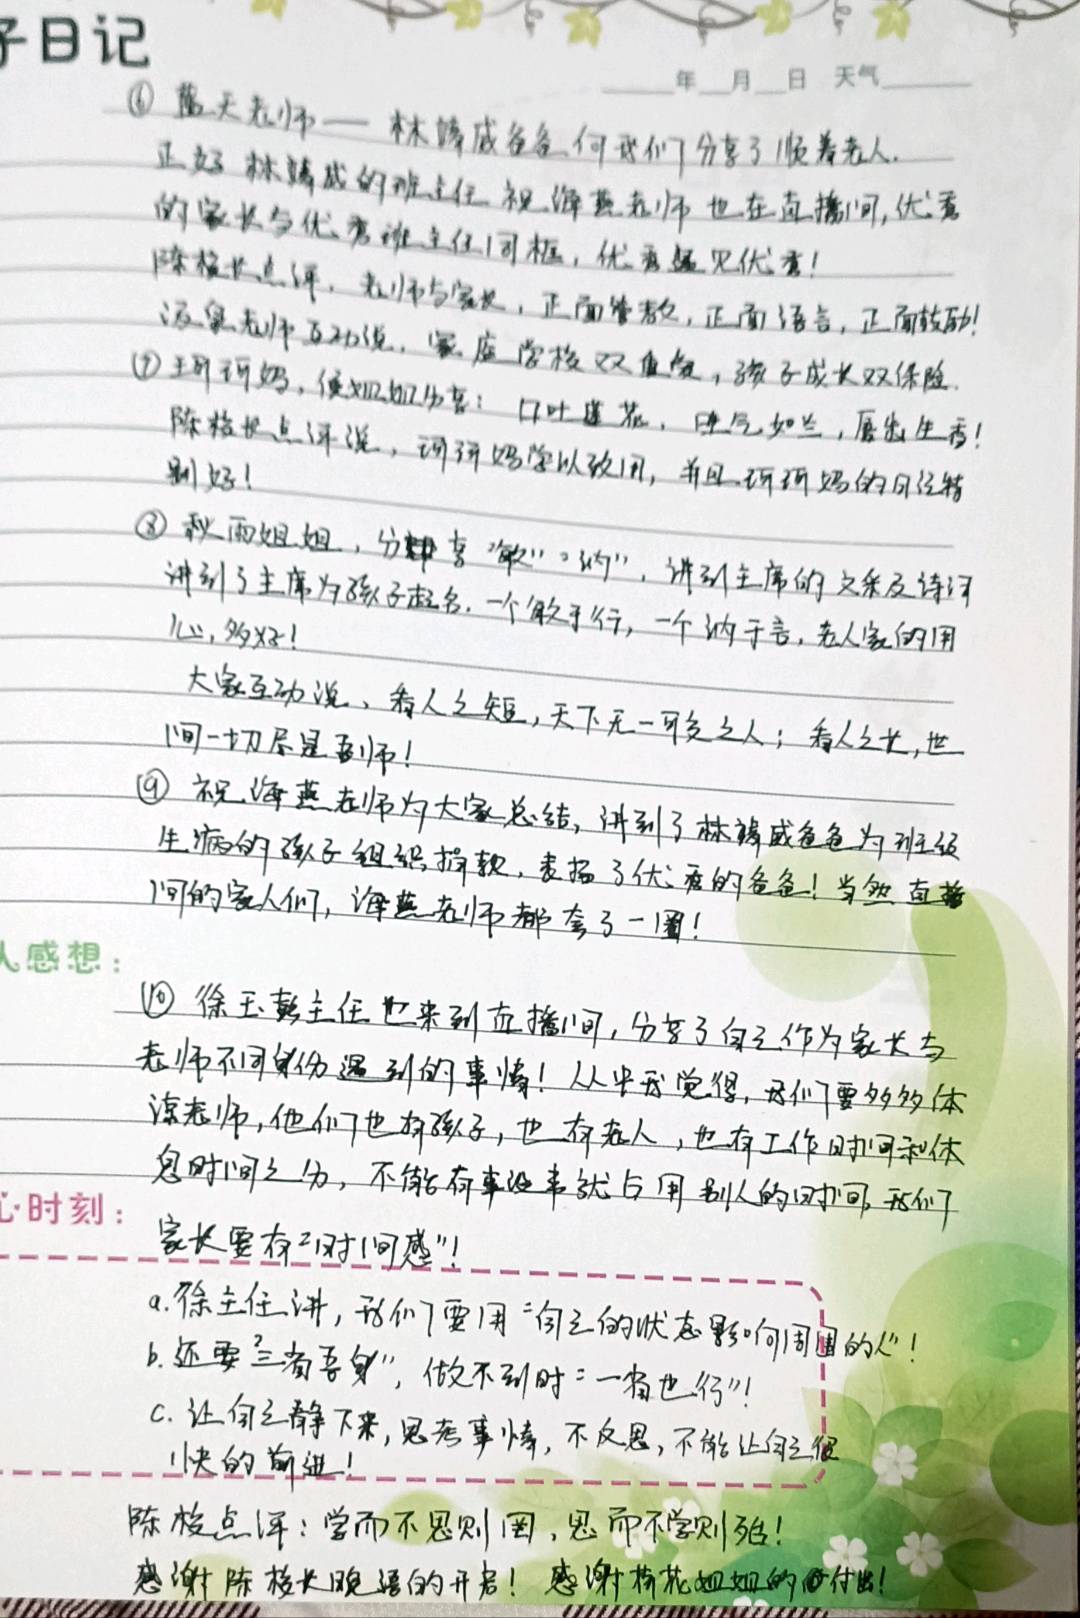 子日记
年 月 日 天气
⑥ 蓝天老师——林靖威爸爸向我们分享了顺着老人.
正好林靖威的班主任祝海燕老师也在直播间,优秀
的家长与优秀班主任同框,优秀遇见优秀!
陈校长点评,老师与家长,正面管教,正面语言,正面鼓励!
汲泉老师互动说,家庭学校双重爱,孩子成长双保险.
⑦ 珂珂妈,便姐姐分享:口吐莲花,呼气如兰,唇齿生香!
陈校长点评说,珂珂妈学以致用,并且珂珂妈的日记特
别好!
⑧ 秋雨姐姐,分享“敏”“讷”,讲到主席的文采及诗词
讲到了主席为孩子起名.一个敏于行,一个讷于言,老人家的用
心,多好!
大家互动说、看人之短,天下无一可交之人;看人之长,世
间一切尽是吾师!
⑨ 祝海燕老师为大家总结,讲到了林靖威爸爸为班级
生病的孩子组织捐款,表扬了优秀的爸爸!当然直播
间的家人们,海燕老师都夸了一圈!
人感想:
⑩ 徐玉彭主任也来到直播间,分享了自己作为家长与
老师不同身份遇到的事情!从中我觉得,我们要多多体
谅老师,他们也有孩子,也有老人,也有工作时间和休
息时间之分,不能有事没事就占用别人的时间,我们
心时刻:
家长要有“时间感”!
a.徐主任讲,我们要用“自己的状态影响周围的人”!
b.还要“三省吾身”,做不到时“一省也行”!
c.让自己静下来,思考事情,不反思,不能让自己很
快的前进!
陈校点评:学而不思则罔,思而不学则殆!
感谢陈校长晚语的开启!感谢荷花姐姐的付出!